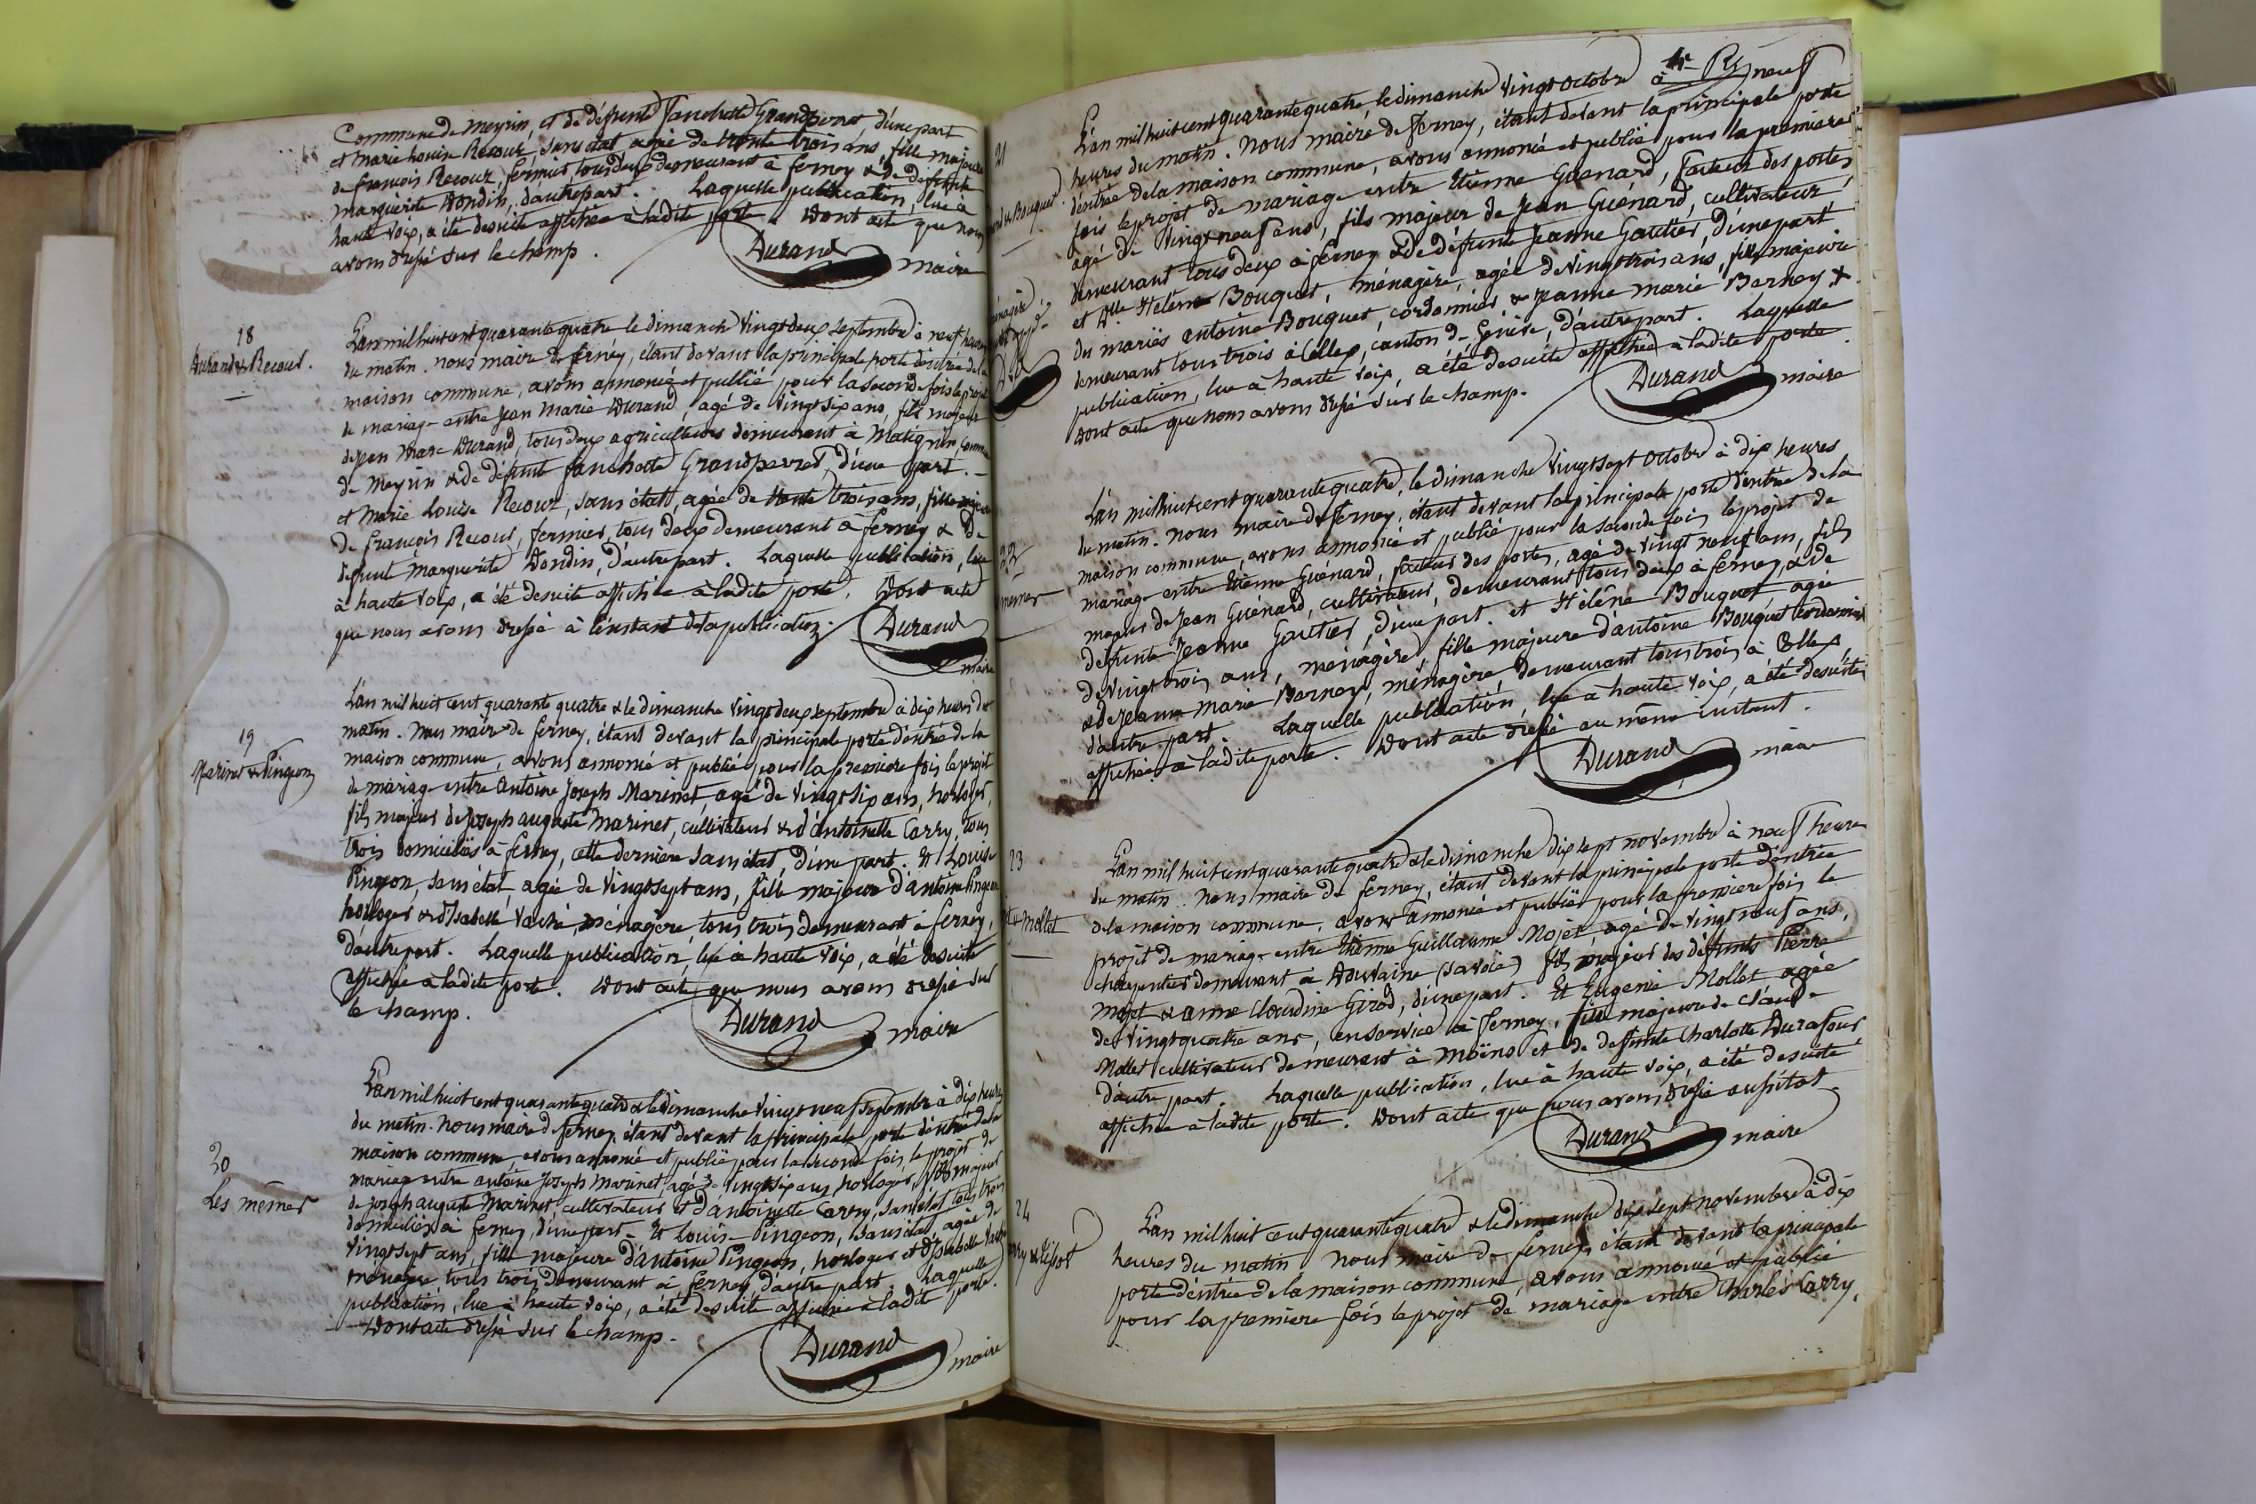 Commune de Meyrin, et de défunte fanchette Grandperret, d'une part
et marie Louise Recour, sans état agée de trente trois ans, fille majeure
de françois Recour, fermier, tous deux demeurant à ferney & de défunte
marguerite Dondin, d'autre part. Laquelle publication, lue à
haute voix, a été desuite affichée à ladite porte. Dont acte que nous
avons dressé sur le champ.
Durand maire
18
Durand & Recour.
L'an mil huit cent quarante quatre le dimanche vingt deux septembre à neuf heures
du matin. nous maire de ferney, étant devant la principale porte d'entrée de la
maison commune, avons annoncé et publié pour la seconde fois le projet
de mariage entre Jean Marie Durand, agé de vingt six ans, fils majeur
de Jean Marc Durand, tous deux agriculteurs demeurant à Matignin, commune
de Meyrin & de défunte fanchette Grandperret, d'une part. —
et Marie Louise Recour, sans état, agée de trente trois ans, fille majeure
de françois Recour, fermier, tous deux demeurant à ferney & de
défunte Marguerite Dondin, d'autre part. Laquelle publication, lue
à haute voix, a été desuite affichée à ladite porte. Dont acte
que nous avons dressé à l'instant de la publication.
Durand
maire
19
Marinet & Pingeon
L'an mil huit cent quarante quatre & le dimanche vingt deux septembre à dix heures du
matin. Nous maire de ferney, étant devant la principale porte d'entrée de la
maison commune, avons annoncé et publié pour la première fois le projet
de mariage entre Antoine Joseph Marinet, agé de vingt six ans, horloger,
fils majeur de Joseph auguste Marinet, cultivateur & d'antoinette Carry, tous
trois domiciliés à ferney, cette dernière sans état, d'une part. Et Louise
Pingeon, sans état, agée de vingt sept ans, fille majeure d'antoine Pingeon
horloger & d'Isabelle Vaché, ménagère, tous trois demeurant à ferney,
d'autre part. Laquelle publication, lue à haute voix, a été desuite
affichée à ladite porte. Dont acte que nous avons dressé sur
le champ.
Durand maire
20
Les mêmes
L'an mil huit cent quarante quatre & le dimanche vingt neuf septembre à dix heures
du matin. Nous maire de ferney, étant devant la principale porte d'entrée de la
maison commune, avons annoncé et publié pour la seconde fois, le projet de
mariage entre antoine Joseph Marinet, agé de vingt six ans, horloger, fils majeur
de Joseph auguste Marinet, cultivateur et d'antoinette Carry, sans état tous trois
domiciliés à ferney, d'une part. Et Louise Pingeon, sans état, agée de
vingt sept ans, fille majeure d'antoine Pingeon, horloger et d'Isabelle Vaché
ménagère tous trois demeurant à ferney, d'autre part. Laquelle
publication, lue à haute voix, a été desuite affichée à ladite porte.
Dont acte dressé sur le champ.
Durand maire
21
& Bouquet
L'an mil huit cent quarante quatre le dimanche vingt octobre à neuf
heures du matin. Nous maire de ferney, étant devant la principale porte
d'entrée de la maison commune, avons annoncé et publié pour la première
fois le projet de mariage entre Etienne Guénard, facteur des postes,
agé de vingt neuf ans, fils majeur de Jean Guénard, cultivateur
demeurant tous deux à ferney & de défunte Jeanne Gautier, d'une part
et Dlle Hélène Bouquet, ménagère, agée de vingt trois ans, fille majeure
du mariés antoine Bouquet, cordonnier & Jeanne Marie Berney
demeurant tous trois à Collex, canton de Genève, d'autre part. Laquelle
publication, lue à haute voix, a été desuite affichée à ladite porte.
Dont acte que nous avons dressé sur le champ.
Durand maire
22
L'an mil huit cent quarante quatre, le dimanche vingt sept octobre à dix heures
du matin. Nous maire de ferney, étant devant la principale porte d'entrée de la
maison commune, avons annoncé et publié pour la seconde fois le projet de
mariage entre Etienne Guénard, facteur des postes, agé de vingt neuf ans, fils
majeur de Jean Guénard, cultivateur, demeurant tous deux à ferney, & de
défunte Jeanne Gautier, d'une part. et Hélène Bouquet agée
de vingt trois ans, ménagère, fille majeure d'antoine Bouquet cordonnier
& de Jeanne Marie Berney, ménagère, demeurant tous trois à Collex,
d'autre part. Laquelle publication, lue à haute voix, a été desuite
affichée à ladite porte. Dont acte dressé au même instant.
Durand maire
23
& Mollet
L'an mil huit cent quarante quatre & le dimanche dix sept novembre à neuf heures
du matin. Nous maire de ferney, étant devant la principale porte d'entrée
de la maison commune, avons annoncé et publié pour la première fois le
projet de mariage entre Etienne Guillaume Mojet, agé de vingt neuf ans,
charpentier demeurant à Douvaine (savoie) fils majeur des défunts Pierre
Mojet & anne Claudine Girod, d'une part. Et Eugénie Mollet agée
de vingt quatre ans, en service à ferney, fille majeure de Claude
Mollet cultivateur demeurant à Moëns et de défunte Charlotte Durafour
d'autre part. Laquelle publication, lue à haute voix, a été desuite
affichée à ladite porte. Dont acte que nous avons dressé aussitôt.
Durand maire
24
L'an mil huit cent quarante quatre & le dimanche dix sept novembre à dix
heures du matin Nous maire de ferney, étant devant la principale
porte d'entrée de la maison commune, avons annoncé et publié
pour la première fois le projet de mariage entre Charles Carry,